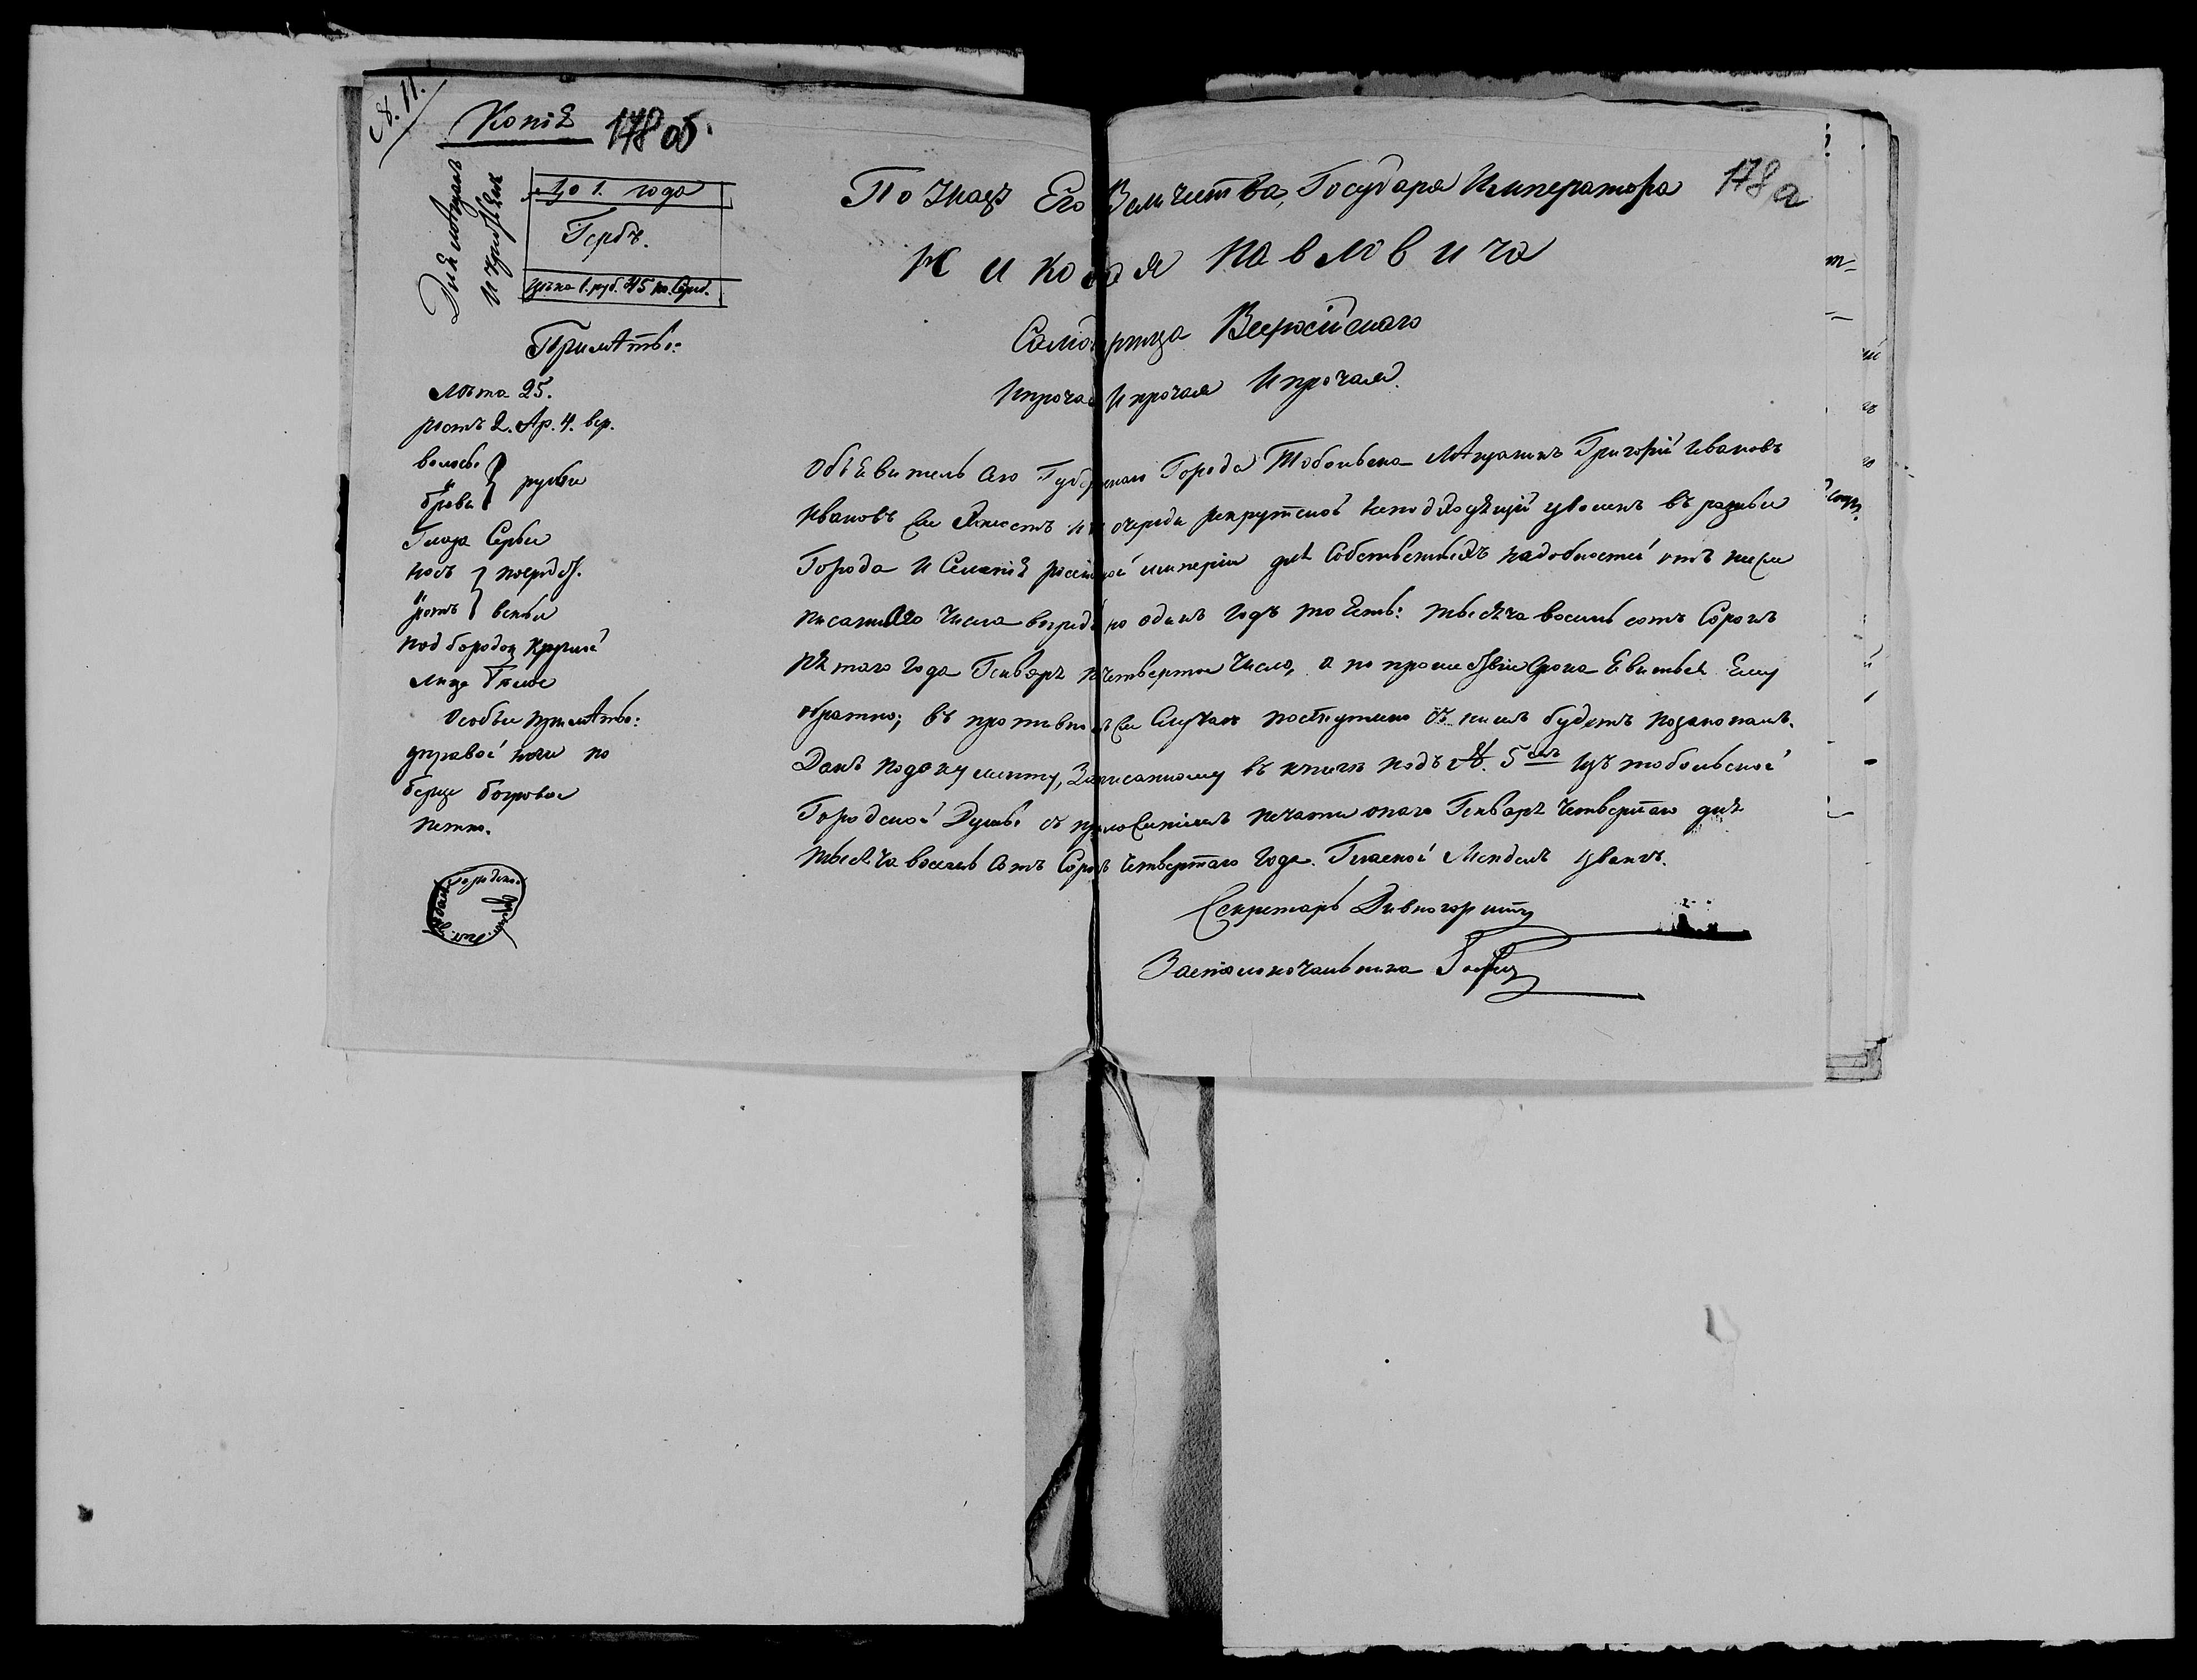 №. 11.
Копія
178 об.
до 1. года
Гербъ.
цѣна 1. руб. 45 к. сереб.
Примѣты:
Лѣта 25.
ростъ 2. Ар. 4. вер.
волосы
брови русые
Глаза Серые
носъ посредст.
ротъ
подбородок круглой
лице белое
Особые примѣты:
управой ноги по
берцу багровое
петно.
178 а
По Указу Его Величества, Государя Императора
Николая Павловича
Самодержца Всеросійскаго
Ипрочая Ипрочая Ипрочая.
Объявитель сего Губернскаго Города Тобольска Мѣщанинъ Григорій Ивановъ
Ивановъ очереди рекрутской неподходящій уволенъ въ разные
Города и Селенія россійской имперіи для Собственныхъ надобностей отъ ниже
писаннаго числа впредь на одинъ годъ то есть: тысяча восемь сотъ Сорокъ
пятаго года Генваря по четвертое Число, а по прошествіи срока явиться Ему
обратно; въ противномъ же Случае поступлено съ нимъ будетъ по законамъ.
Данъ подокументу, Записанному въ книге подъ №. 5 изъ тобольской
Городской Думы съ приложеніемъ печати оной Генваря четвертаго дня
тысяча восемь сотъ Сорокъ четвертаго года. Гласной
Секретарь